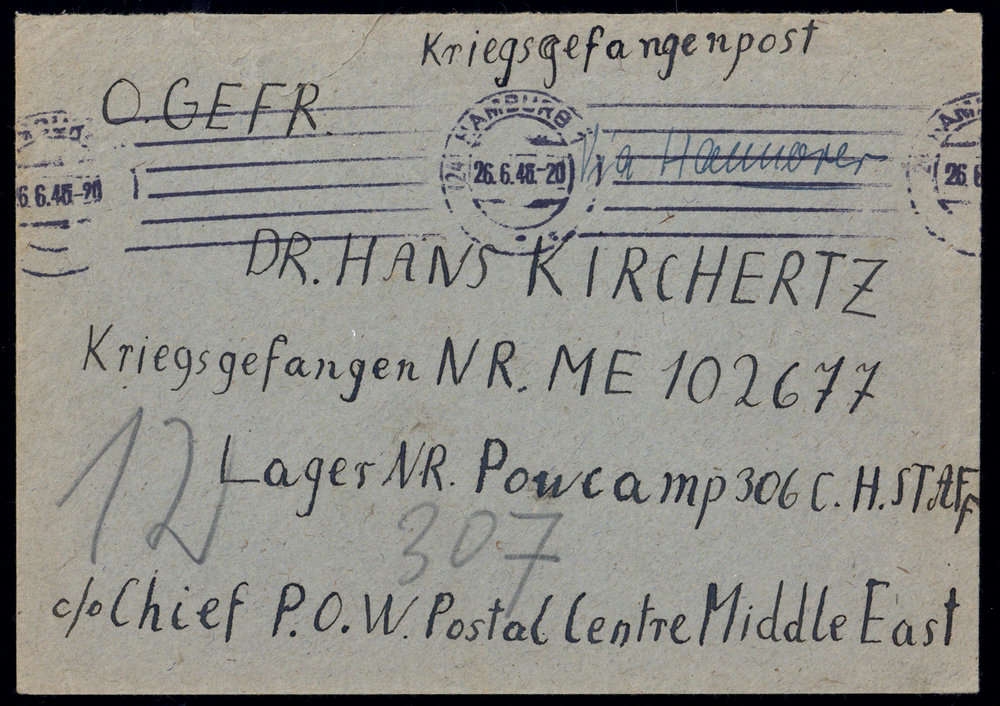 Kriegsgefangenpost
O. GEFR.
HAMBURG
26.6.46-20
Via Hannover
DR. HANS KIRCHERTZ
Kriegsgefangen NR. ME 102677
Lager NR. Powcamp 306 C. H. STAFF
12
307
c/o Chief P.O.W. Postal Centre Middle East